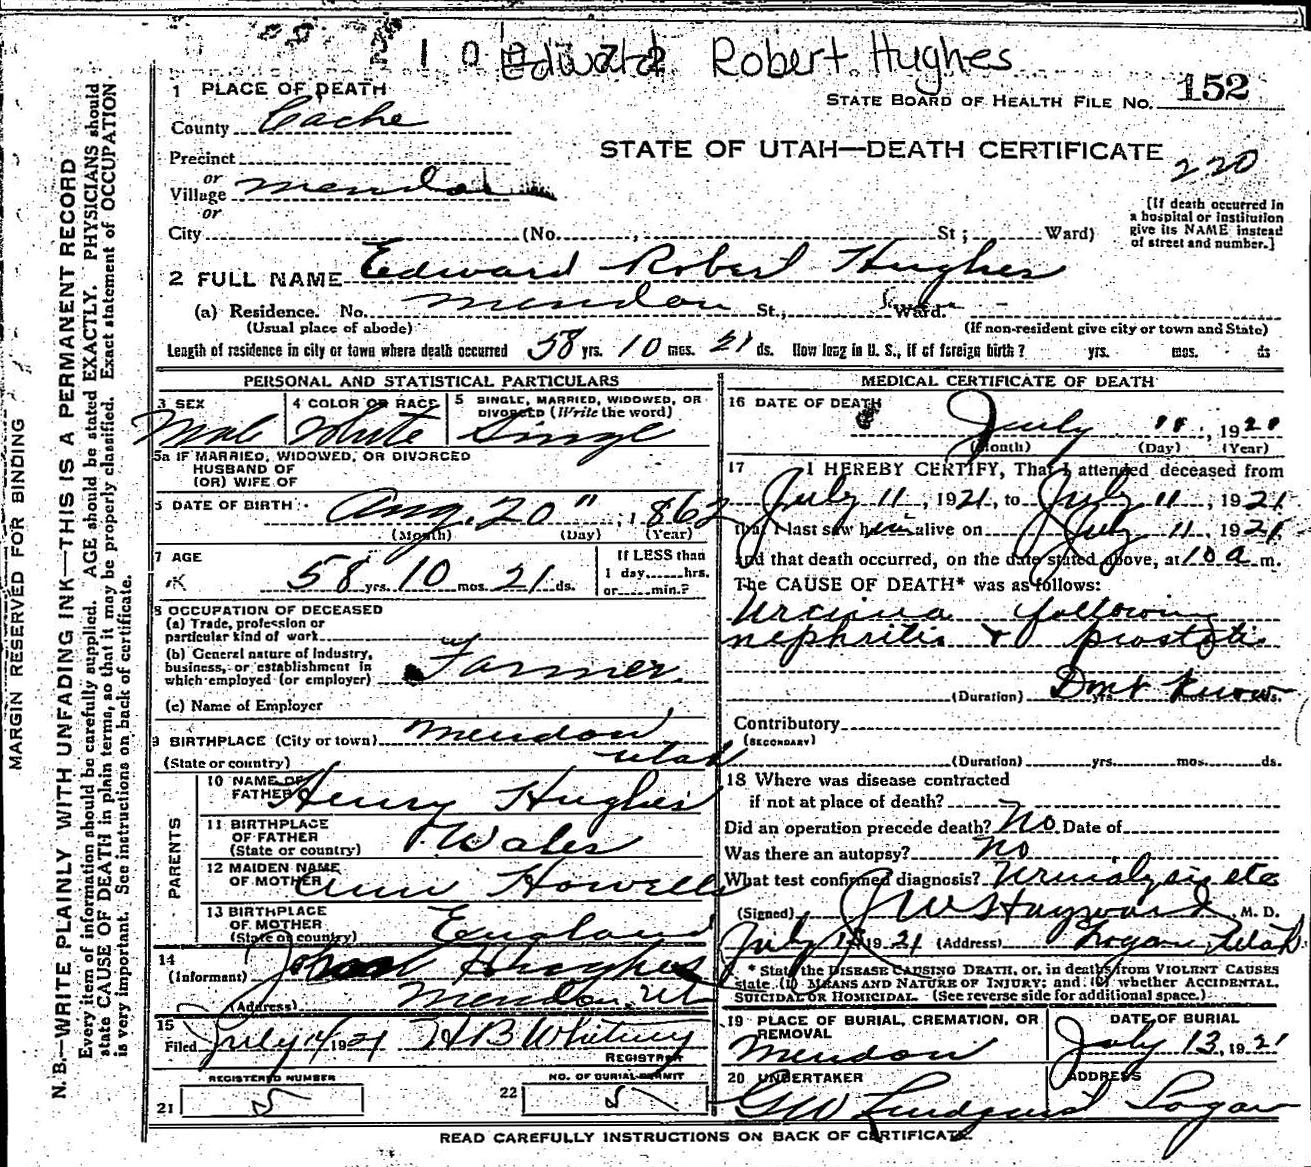 Edward Robert Hughes
STATE BOARD OF HEALTH FILE NO. 152
1 PLACE OF DEATH
County Cache
STATE OF UTAH—DEATH CERTIFICATE
220
Precinct
or
Village Mendon
or
City (No. , St ; Ward)
[If death occurred in
a hospital or institution
give its NAME instead
of street and number.]
2 FULL NAME Edward Robert Hughes
(a) Residence. No. Mendon St., Ward.
(Usual place of abode) (If non-resident give city or town and State)
Length of residence in city or town where death occurred 58 yrs. 10 mos. 21 ds. How long in U. S., if of foreign birth? yrs. mos. ds
PERSONAL AND STATISTICAL PARTICULARS
3 SEX 4 COLOR OR RACE 5 SINGLE, MARRIED, WIDOWED, OR
DIVORCED (Write the word)
Male White Single
5a IF MARRIED, WIDOWED, OR DIVORCED
HUSBAND OF
(OR) WIFE OF
6 DATE OF BIRTH Aug. 20", 1862
(Month) (Day) (Year)
7 AGE If LESS than
58 yrs. 10 mos. 21 ds. 1 day hrs.
or min.?
8 OCCUPATION OF DECEASED
(a) Trade, profession or
particular kind of work
(b) General nature of industry,
business, or establishment in
which employed (or employer) Farmer
(c) Name of Employer
9 BIRTHPLACE (City or town) Mendon
(State or country) Utah
PARENTS
10 NAME OF
FATHER Henry Hughes
11 BIRTHPLACE
OF FATHER
(State or country) Wales
12 MAIDEN NAME
OF MOTHER Ann Howells
13 BIRTHPLACE
OF MOTHER
(State or country) England
14
(Informant) John Hughes
(Address) Mendon, Ut
15
Filed July 14 1921 H B Whitney
REGISTRAR
REGISTERED NUMBER NO. OF BURIAL PERMIT
21 5 22 5
MEDICAL CERTIFICATE OF DEATH
16 DATE OF DEATH
July 11, 1921
(Month) (Day) (Year)
17 I HEREBY CERTIFY, That I attended deceased from
July 11, 1921, to July 11, 1921
that I last saw him alive on July 11, 1921
and that death occurred, on the date stated above, at 10 a m.
The CAUSE OF DEATH* was as follows:
Uremia following
nephritis & prostatitis
(Duration) Dont know yrs. mos. ds.
Contributory
(SECONDARY)
(Duration) yrs. mos. ds.
18 Where was disease contracted
if not at place of death?
Did an operation precede death? No Date of
Was there an autopsy? No
What test confirmed diagnosis? Urinalysis etc
(Signed) J W Hayward, M. D.
July 1921 (Address) Logan, Utah
* State the DISEASE CAUSING DEATH, or, in deaths from VIOLENT CAUSES
state (1) MEANS AND NATURE OF INJURY; and (2) whether ACCIDENTAL,
SUICIDAL OR HOMICIDAL. (See reverse side for additional space.)
19 PLACE OF BURIAL, CREMATION, OR DATE OF BURIAL
REMOVAL
Mendon July 13, 1921
20 UNDERTAKER ADDRESS
G W Lindquist Logan
READ CAREFULLY INSTRUCTIONS ON BACK OF CERTIFICATE.
MARGIN RESERVED FOR BINDING
N. B.—WRITE PLAINLY WITH UNFADING INK—THIS IS A PERMANENT RECORD
Every item of information should be carefully supplied. AGE should be stated EXACTLY. PHYSICIANS should
state CAUSE OF DEATH in plain terms, so that it may be properly classified. Exact statement of OCCUPATION
is very important. See instructions on back of certificate.